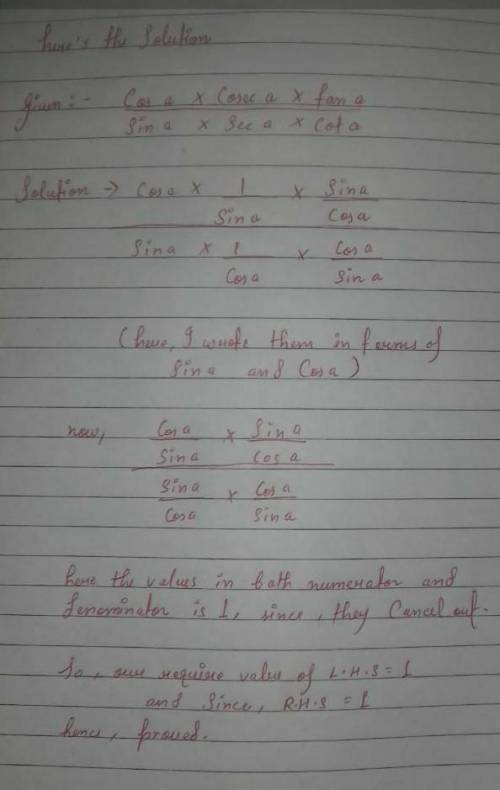 here's the Solution
given:- Cos a x Cosec a x tan a
Sin a x Sec a x Cot a
Solution -> Cos a x 1 x Sin a
Sin a Cos a
Sin a x 1 x Cos a
Cos a Sin a
(here, I wrote them in forms of
Sin a and Cos a)
now, Cos a x Sin a
Sin a Cos a
Sin a x Cos a
Cos a Sin a
here the values in both numerator and
denominator is 1, since, they Cancel out.
So, our require value of L.H.S = 1
and Since, R.H.S = 1
hence, proved.